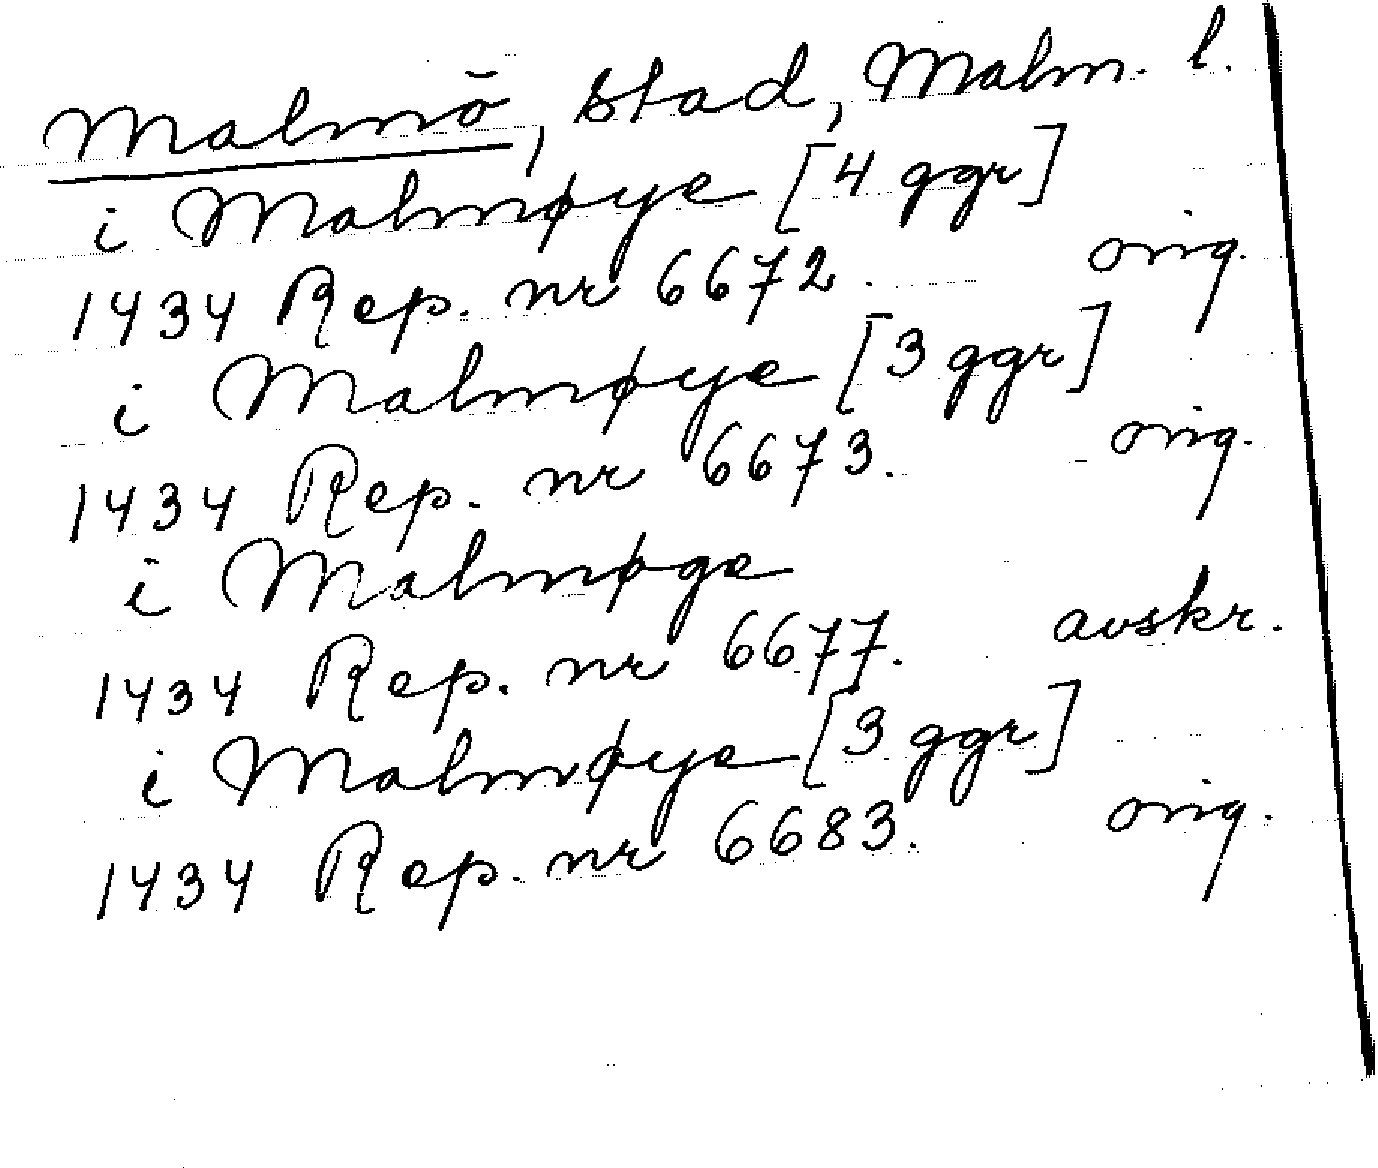 Malmö, stad, Malm. l.
i Malmøye [4 ggr]
1434 Rep. nr 6672. orig.
i Malmøye [3 ggr]
1434 Rep. nr 6673. orig.
i Malmøge
1434 Rep. nr 6677. avskr.
i Malmøye [3 ggr]
1434 Rep. nr 6683. orig.